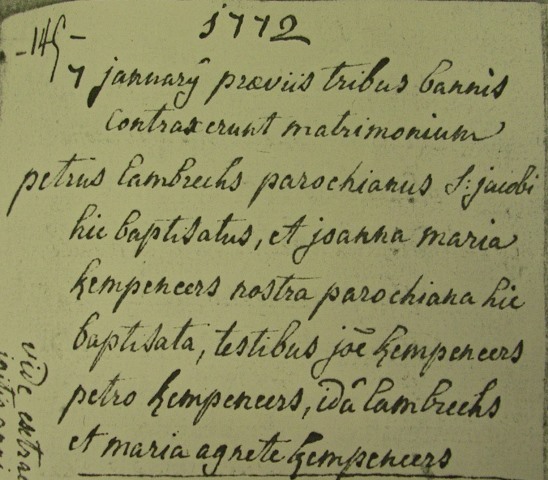 1772
-145-
7 januarij præviis tribus bannis
contraxerunt matrimonium
petrus lambrechs parochianus S: jacobi
hic baptisatus, et joanna maria
kempeneers nostra parochiana hic
baptisata, testibus joē kempeneers
petro kempeneers, idâ lambrechs
et maria agnete kempeneers
vide extra